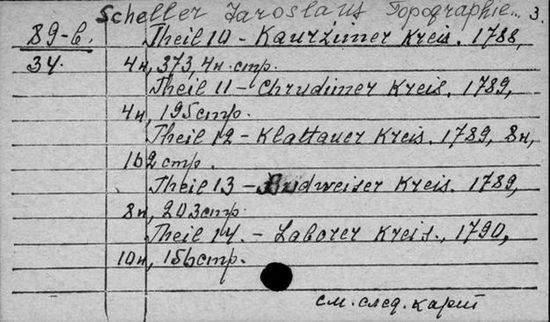 Scheller Jaroslaus Topographie... 3.
89-6. Theil 10 - Kaurzimer Kreis. 1788,
34. 4н, 373, 4н. стр.
Theil 11 - Chrudimer Kreis. 1789,
4н, 195 стр.
Theil 12 - Klattauer Kreis. 1789, 8н,
162 стр.
Theil 13 - Budweiser Kreis. 1789,
8н, 203 стр.
Theil 14. - Taborer Kreis., 1790,
10н, 156 стр.
см. след. карт